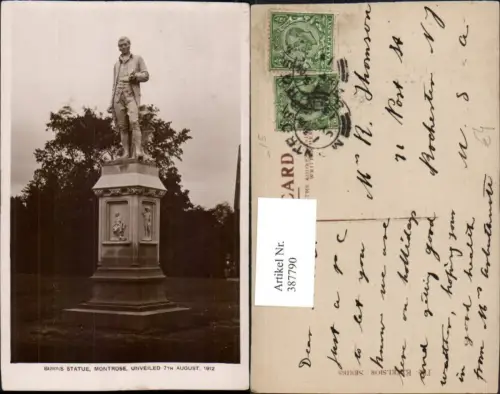 BURNS STATUE, MONTROSE, UNVEILED 7TH AUGUST, 1912
Artikel Nr.
387790
CARD
Mrs R. Thomson
71 Post St
Rochester N.Y
U. S. a
Dear
Just a P C
to let you
know we are
on hollidays
and getting good
weather, hoping your
in good health
from Mrs
EXCELSIOR SERIES